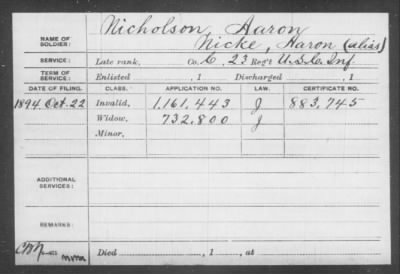 NAME OF SOLDIER: Nicholson, Aaron
Nicke, Aaron (alias)
SERVICE: Late rank, Co. C, 23 Reg't U.S.C. Inf
TERM OF SERVICE: Enlisted , 1 Discharged , 1
DATE OF FILING. CLASS. APPLICATION NO. LAW. CERTIFICATE NO.
1894 Oct. 22 Invalid, 1,161,443 J 883,745
Widow, 732,800 J
Minor,
ADDITIONAL SERVICES:
REMARKS:
Died , 1 , at